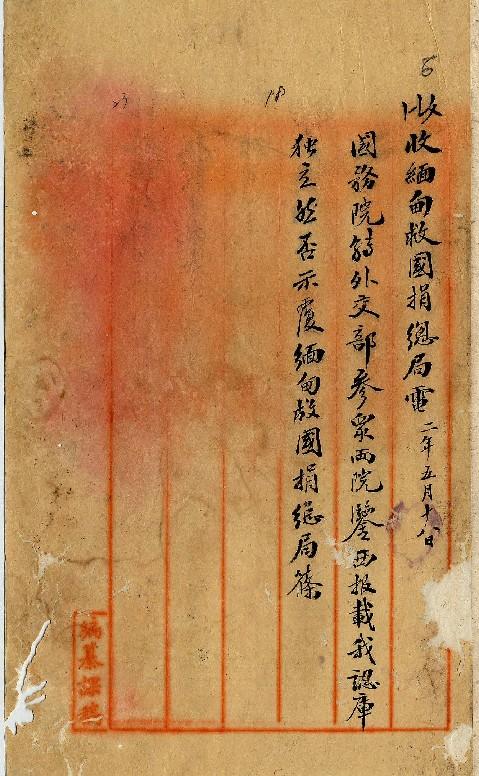 6
18
23
收收緬甸救國捐總局電 二年五月十八日
國務院轉外交部參眾兩院鑒西报載我認庫
独立然否示覆緬甸救國捐總局篠
編纂課